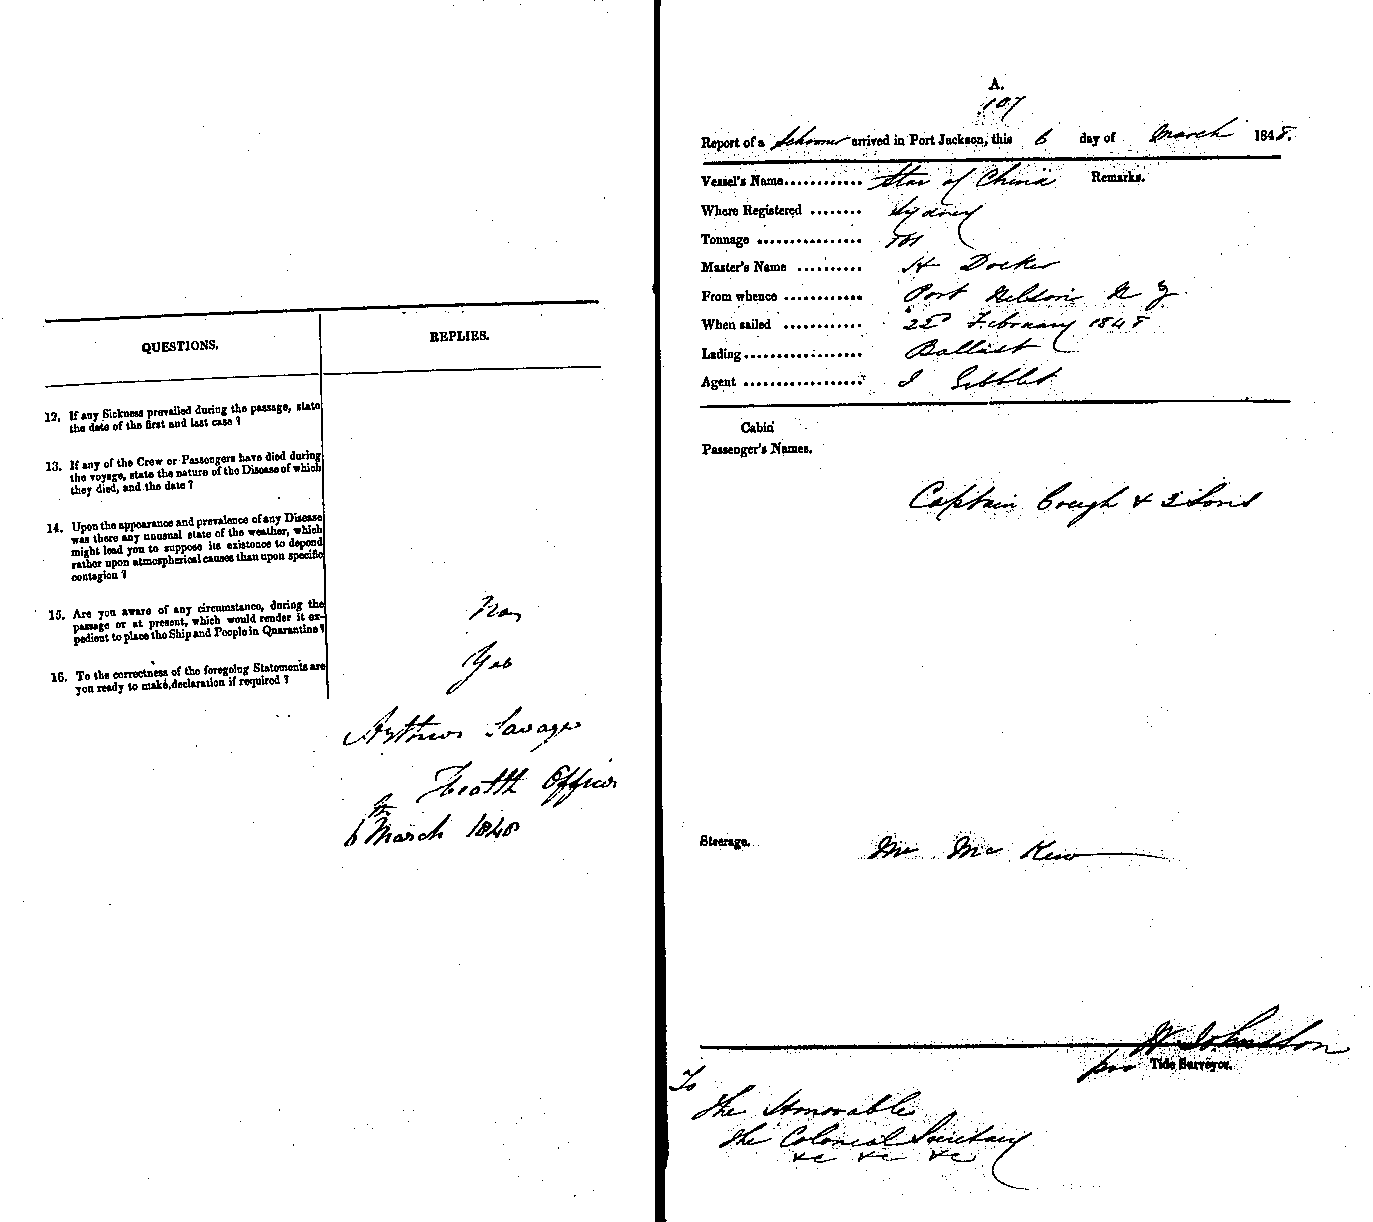 QUESTIONS.
REPLIES.
12. If any Sickness prevailed during the passage, state
the date of the first and last case ?
13. If any of the Crew or Passengers have died during
the voyage, state the nature of the Disease of which
they died, and the date ?
14. Upon the appearance and prevalence of any Disease
was there any unusual state of the weather, which
might lead you to suppose its existence to depend
rather upon atmospherical causes than upon specific
contagion ?
15. Are you aware of any circumstance, during the
passage or at present, which would render it ex-
pedient to place the Ship and People in Quarantine ?
No,
16. To the correctness of the foregoing Statements are
you ready to make declaration if required ?
Yes
Arthur Savage
Health Officer
6th March 1848
A.
107
Report of a Schooner arrived in Port Jackson, this 6 day of March 1848.
Vessel's Name............ Star of China Remarks.
Where Registered ........ Sydney
Tonnage ................
Master's Name .......... H Docker
From whence ............ Port Nelson N Z
When sailed ............ 22D February 1848
Lading................... Ballast
Agent ................... Gibblet
Cabin
Passenger's Names.
Captain Cough & 3 Sons
Steerage. Mr Mc Kew
W Johnston
pro Tide Surveyor.
To
The Honorable
the Colonial Secretary
&c &c &c